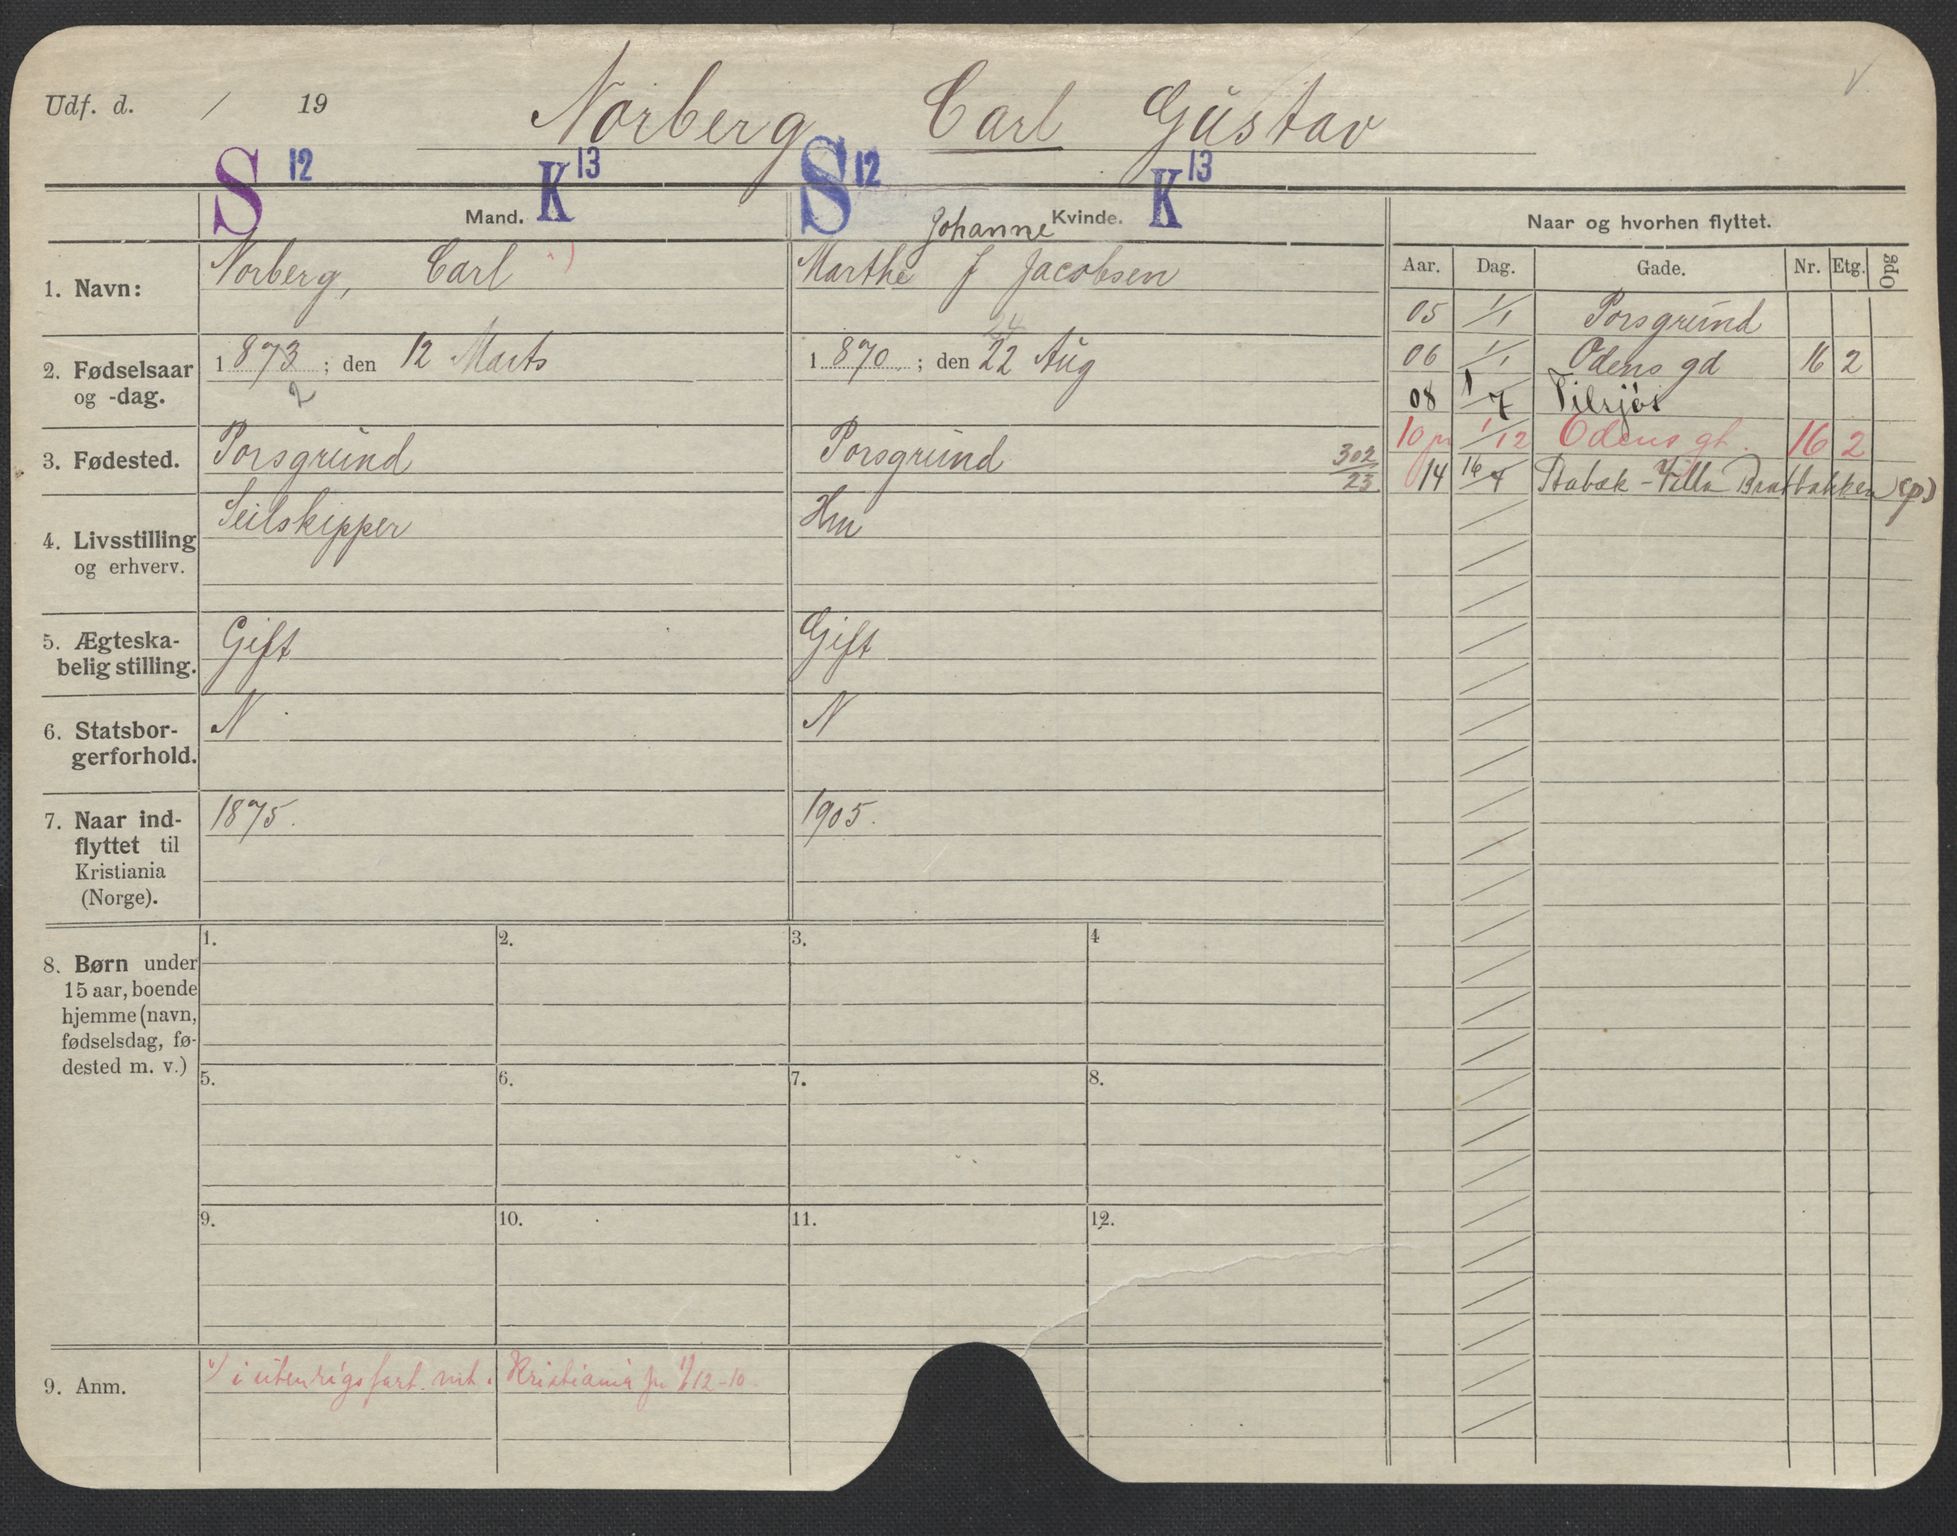 Udf. d. / 19 Norberg Carl Gustav
S 12 K 13 S 12 K 13
Mand. Kvinde. Naar og hvorhen flyttet.
Johanne
1. Navn: Norberg, Carl Marthe J Jacobsen
Aar. Dag. Gade. Nr. Etg. Opg
05 1/1 Porsgrund
24
2. Fødselsaar og -dag. 1873 ; den 12 Marts 1870 ; den 22 Aug
2
06 1/1 Odens gd 16 2
08 1/7 Tilsjøs
3. Fødested. Porsgrund Porsgrund 302/23
10 1/12 Odens gt. 16 2
14 16/4 Stabæk - Villa Bratbakken (p)
4. Livsstilling og erhverv. Seilskipper Hm
5. Ægteska-
belig stilling. Gift Gift
6. Statsbor-
gerforhold. N N
7. Naar ind-
flyttet til
Kristiania
(Norge). 1875. 1905.
8. Børn under
15 aar, boende
hjemme (navn,
fødselsdag, fø-
dested m. v.)
1. 2. 3. 4
5. 6. 7. 8.
9. 10. 11. 12.
9. Anm. i utenrigsfart. mt. Kristiania 1/12-10.